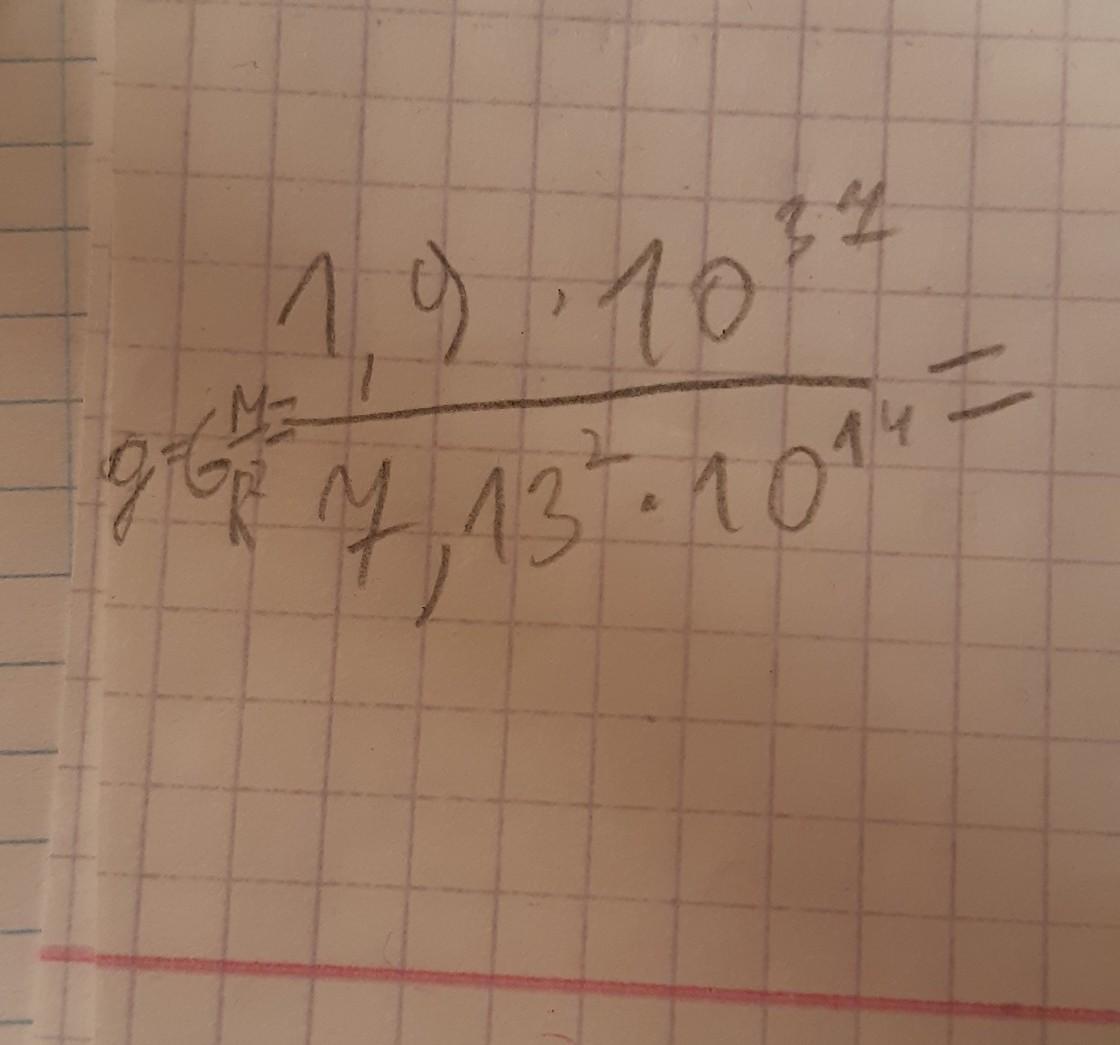 g=G M/R² = 1,9 · 10³⁷ / 7,13² · 10¹⁴ =